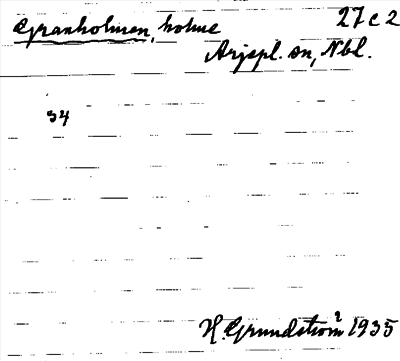 Granholmen, holme 27 c 2
Arjepl. sn, Nbl.
34
H. Grundström 1935